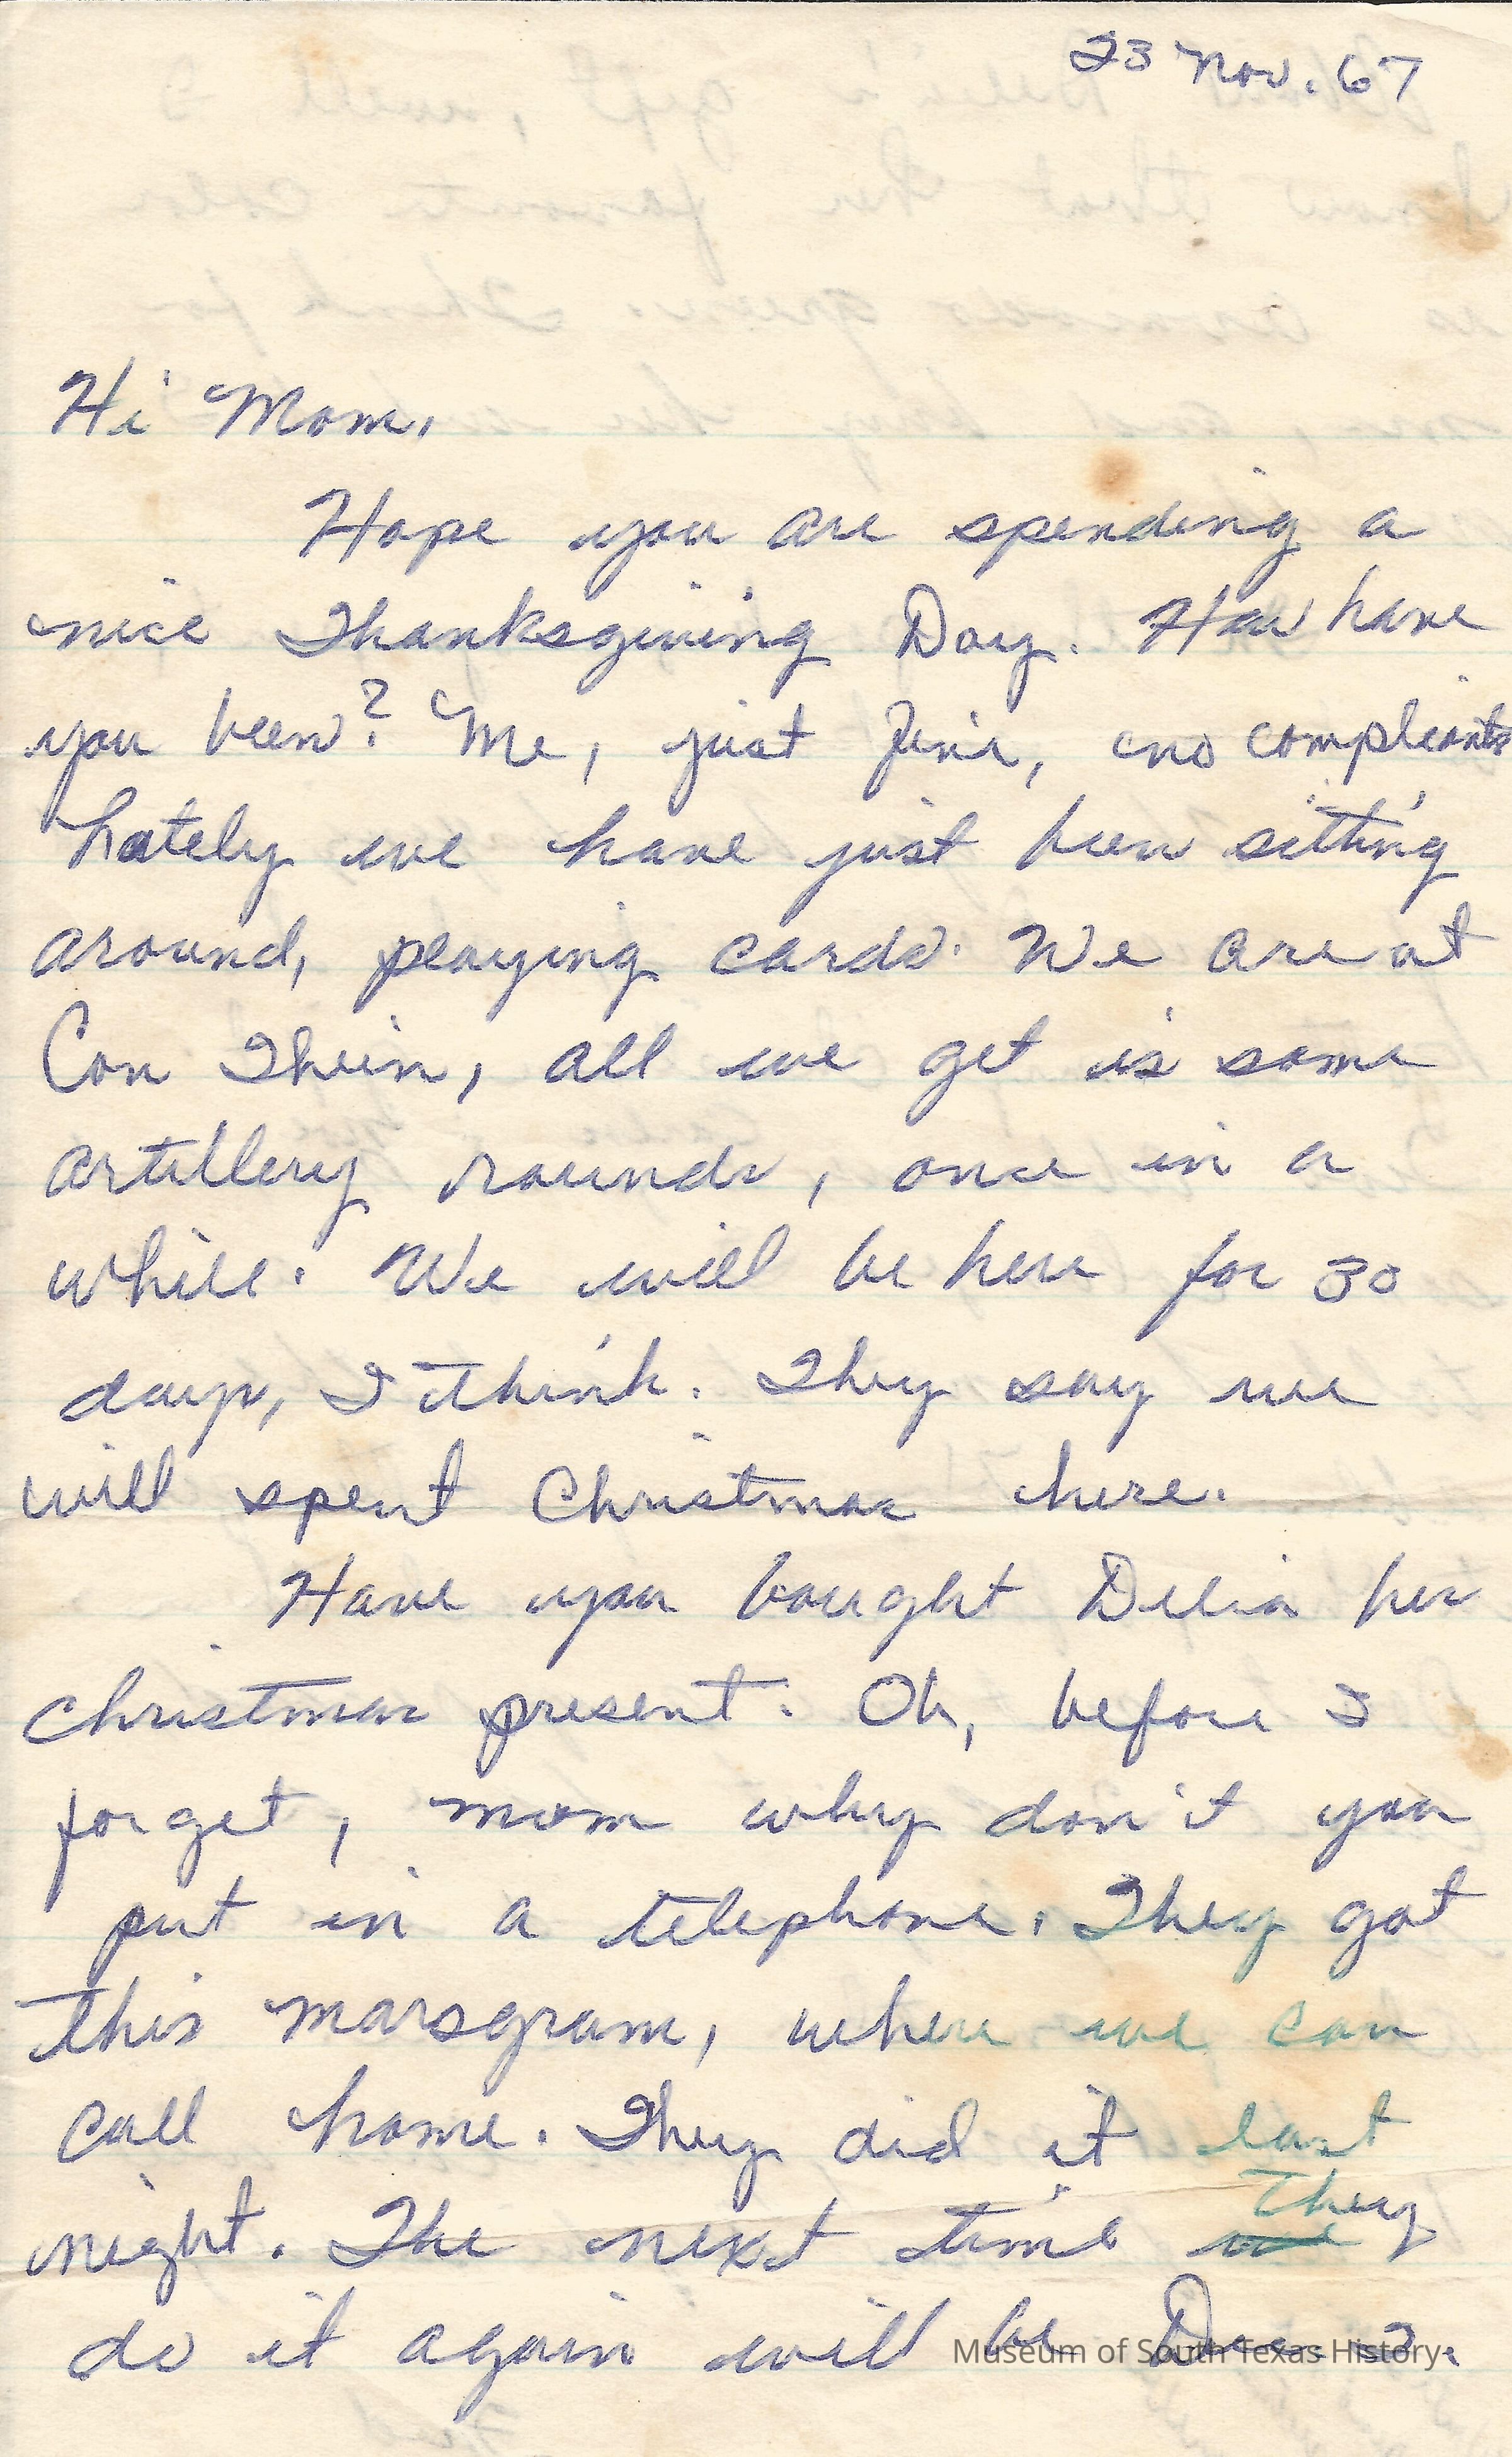 23 Nov. 67
Hi Mom,
Hope you are spending a
nice Thanksgiving Day. How have
you been? Me, just fine, no compliants
Lately we have just been sitting
around, playing cards. We are at
Con Thein, all we get is some
artillery rounds, once in a
while. We will be here for 30
days, I think. They say we
will spent Christmas here.
Have you bought Delia her
christmas present. Oh, before I
forget, mom why don't you
put in a telephone. They got
this marsgram, where we can
call home. They did it last
night. The next time we they
do it again will be Dec. 2.
Museum of South Texas History